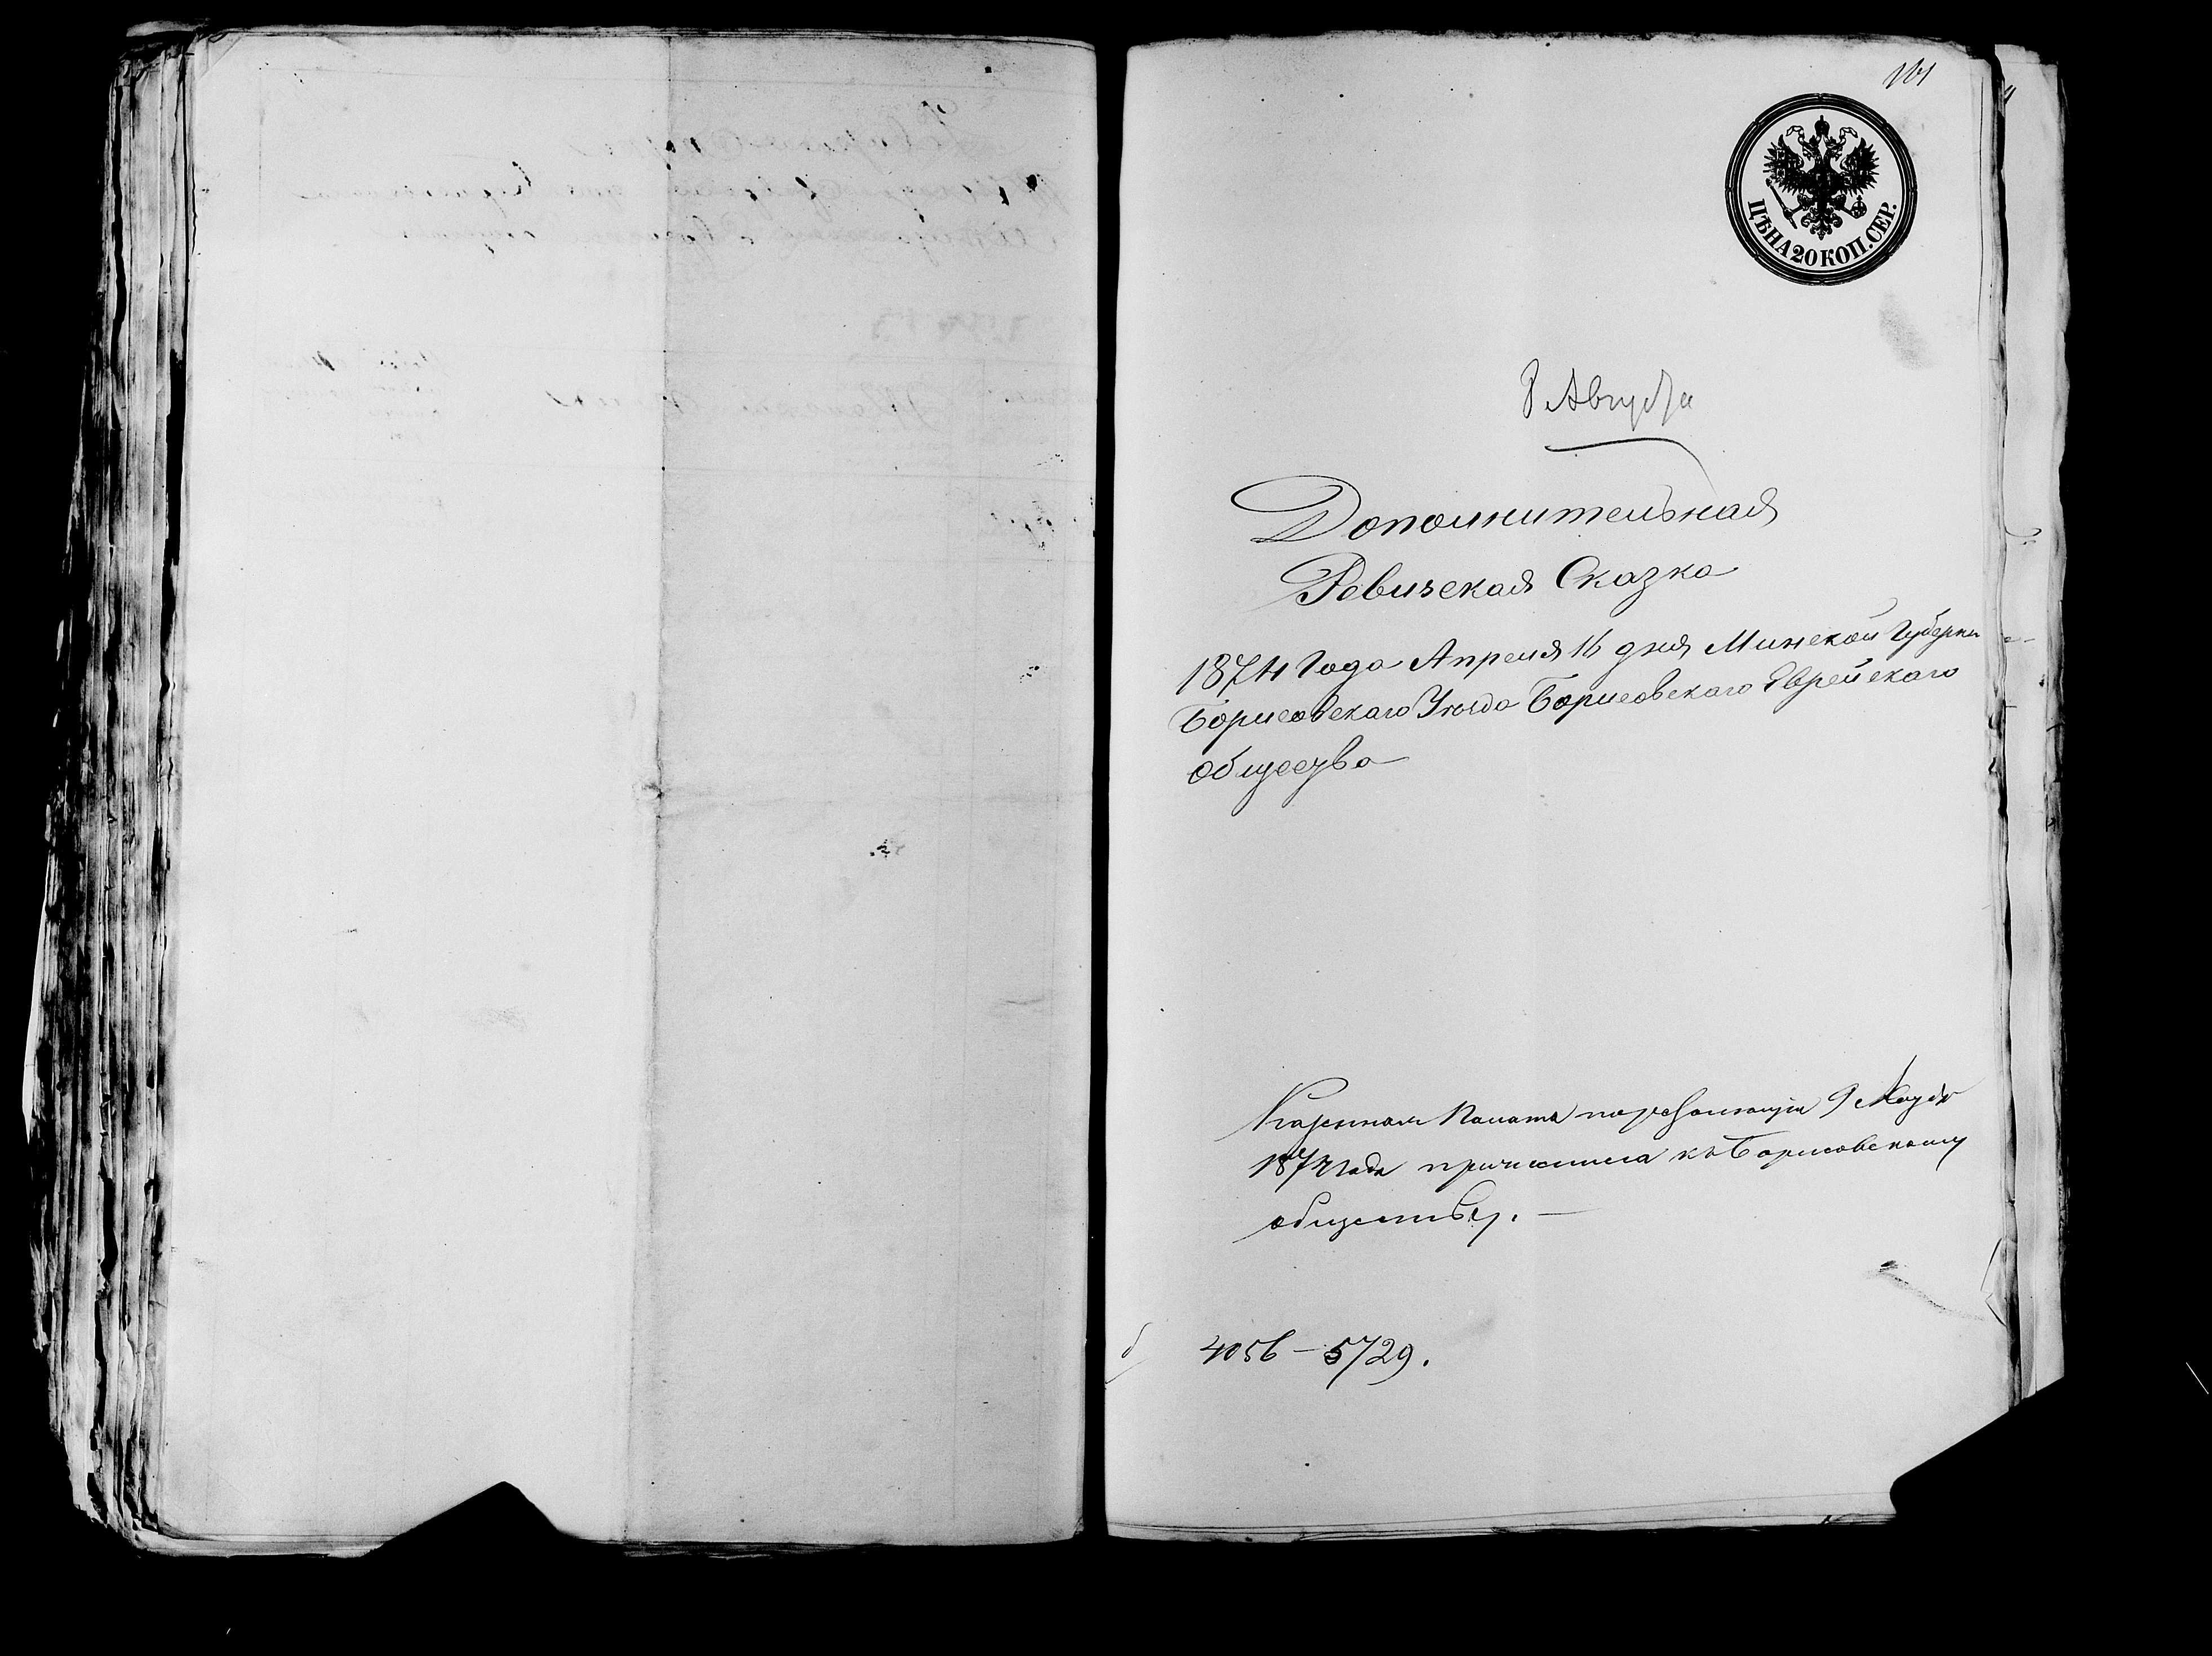 161
ЦѢНА 20 КОП. СЕР.
8 Августа
Дополнительная
Ревизская Сказка
1874 Года Апреля 16 дня Минской Губерни
Борисовскаго Уезда Борисовскаго Еврейскаго
общества
Казенная Палата по резолюціи 9 
1874 года причислила къ Борисовскому
обществу. —
4056 – 5729.